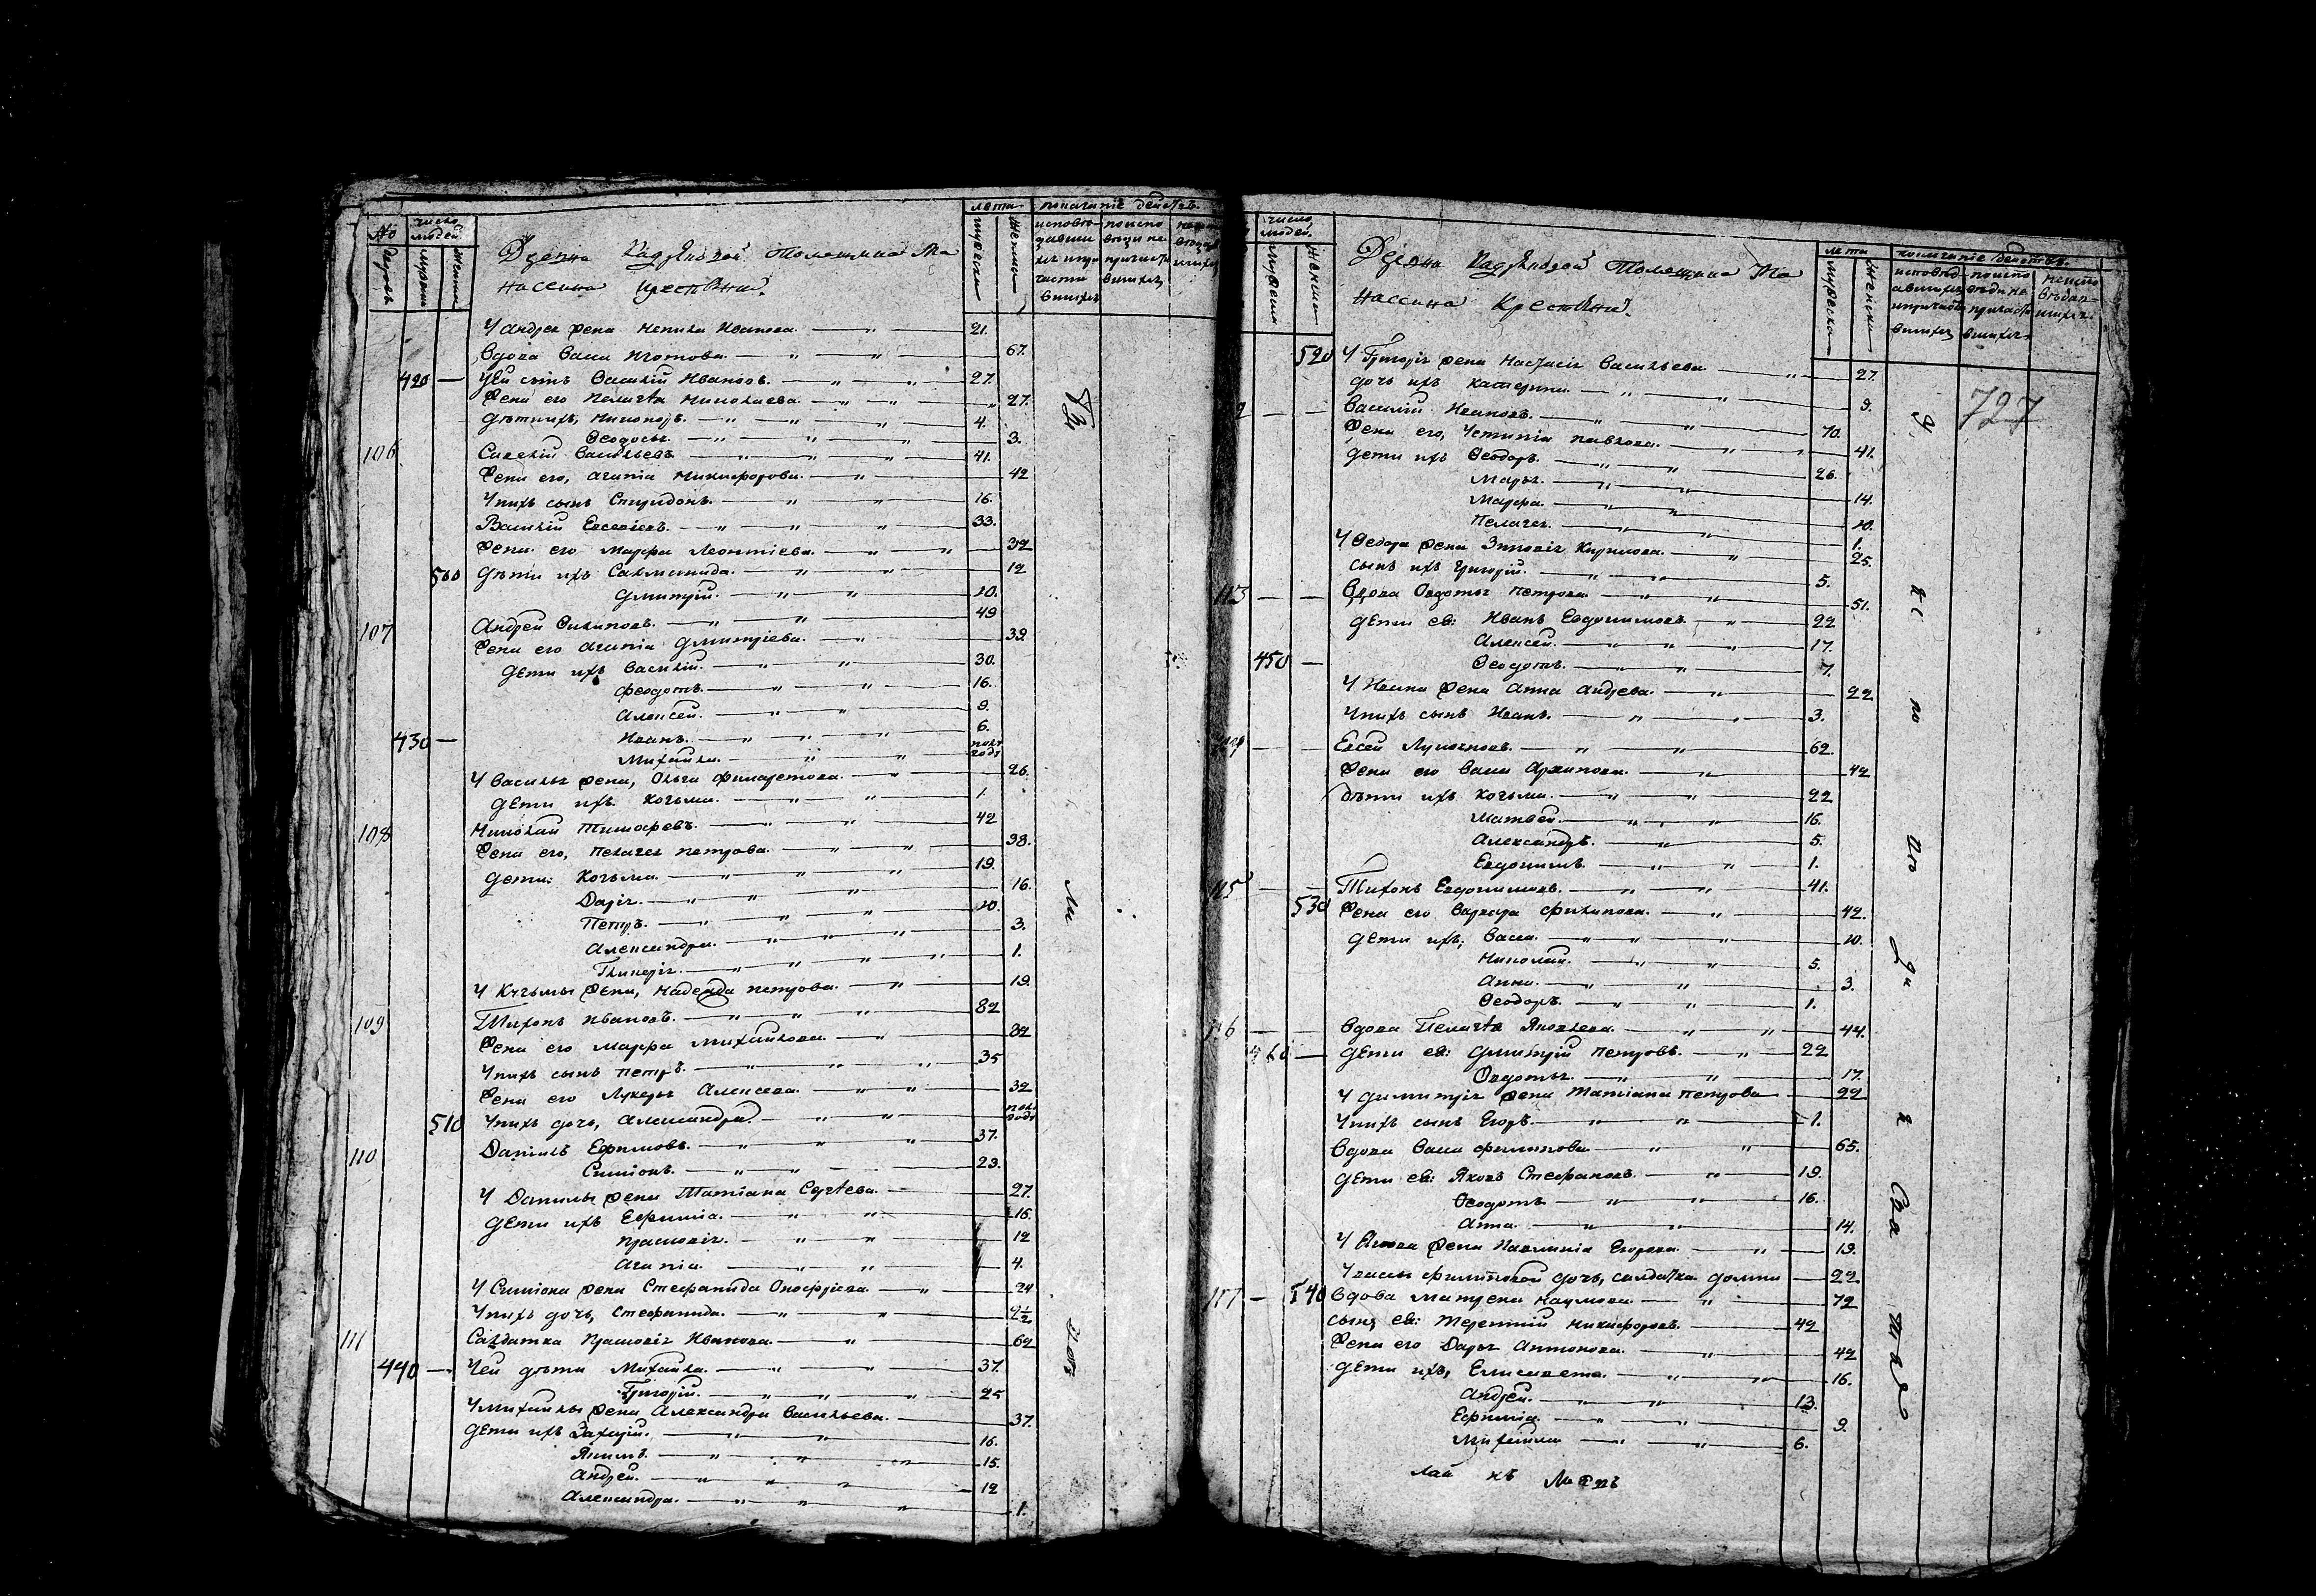 лета показание действъ
№ дворовъ
число людей
мужеска женска
Помещика Ма
насеина крестьяне.
У Андрея жена Иванова 21.
Вдова Васса 67.
420 У ей сынъ Василий Ивановъ. 27.
Жена его Пелагея Николаева 27.
Дети ихъ, 4.
Феодосья 3.
106 Савелий Васильевъ 41.
Жена его, Агапия Никифорова. 42
У нихъ сынъ Спиридонъ. 16.
Василий 33.
Жена его Марфа Леонтиева. 32
500 Дети ихъ 12
Дмитрий. 10.
107 Андрей Филиповъ. 49
Жена его Агапия Дмитриева. 39.
Дети ихъ Василий. 30.
Феодотъ. 16.
Алексей. 9.
430 Иванъ. 6.
Михайла. полъ года
У Василья жена, Ольга Филаретова. 26.
Дети ихъ Козьма. 1.
108 Николай Тимофеевъ. 42
Жена его, Пелагея Петрова. 38.
Дети: Козьма. 19.
Дарья. 16.
Петръ. 10.
Александра. 3.
Гликерия. 1.
У Козьмы жена, Надежда Петрова. 19.
109 Тихонъ Ивановъ. 82
Жена его Марфа Михайлова. 82
У нихъ сынъ Петръ. 35
Жена его Лукерья Алексеева. 32
510 У нихъ дочь, Александра. полъ года
110 Данилъ Ефимовъ. 37.
Симионъ. 23.
У Данилы жена Татиана Сергеева. 27.
Дети ихъ Ефимия. 16.
Прасковия. 12
Агапия. 4.
У Симиона жена Стефанида Онофриева. 24
У нихъ дочь, Стефанида. 2½
111 Салдатка Прасковия Иванова. 62
440 У ей дети Михайла. 37.
Григорий. 25
У Михайлы жена Александра Васильева. 37.
Дети ихъ Захарий. 16.
Якимъ. 15.
Андрей. 12
Александра. 1.
число людей.
мужеска женска
лета показание действъ.
Помещика Ма
насеина Крестьяне.
727
520 У Григория жена Настасия Васильева 27.
дочь ихъ Катерина. 9.
Василий Ивановъ. 70.
Жена его, Устиния Павлова. 41.
Дети ихъ Феодоръ. 26.
Марья. 14.
Марфа. 10.
Пелагея. 1.
У Федора жена Зиновия Кирилова. 25.
сынъ ихъ Григорий. 5.
113 Вдова Овдотья Петрова. 51.
Дети ея: Иванъ Евдокимовъ 22
Алексей. 17.
450 Феодотъ. 7.
У Ивана жена Анна Андреева. 22
У нихъ сынъ Иванъ. 3.
Евсей 62
Жена его Васса Архипова. 42
Дети ихъ Козьма. 22
Матвей. 16.
Александръ. 5.
Евдокимъ. 1.
115 Тихонъ Евдокимовъ. 41.
530 Жена его Варвара Филипова. 42.
Дети ихъ, Васса. 10.
Николай. 5.
Анна. 3.
Феодоръ. 1.
116 Вдова Пелагея Яковлева. 44.
460 Дети ея: Дмитрий Петровъ. 22
Овдотья. 17.
У Димитрия жена Татиана Петрова 22
У нихъ сынъ Егоръ. 1.
Вдова Васса Филипова. 65.
Дети ея: Яковъ Стефановъ. 19.
Феодотъ 16.
Анна. 14.
У Якова жена Егорова 19.
У Вассы Филиповой дочь, салдатка 22
117 540 Вдова Матрена Наумова. 72
сынъ ея: Терентий Никифоровъ. 42
Жена его Дарья Антонова. 42
Дети ихъ, Елисавета. 16.
Андрей. 13.
Ефимия. 9.
Михайла 6.